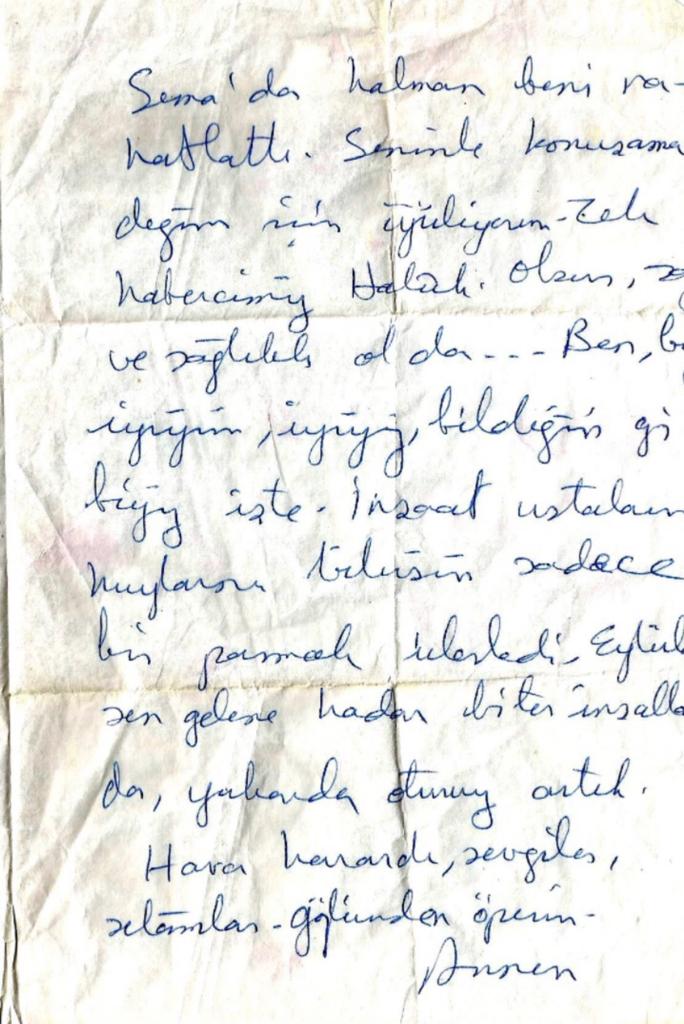 Sema'da kalman beni ra-
hatlattı. Seninle konuşama
dığım için üzülüyorum. Tek
habercimiz Haluk. Olsun,
ve sağlıklı ol da--- Ben,
iyiyim, iyiyiz, bildiğin gi
biyiz işte. İnşaat ustaların
huylarını bilirsin sadece
bir parmak ilerledi. Eylül
sen gelene kadar biter inşalla
da, yukarıda otururuz artık.
Hava karardı, sevgiler,
selâmlar. Gözünden öperim.
Annen